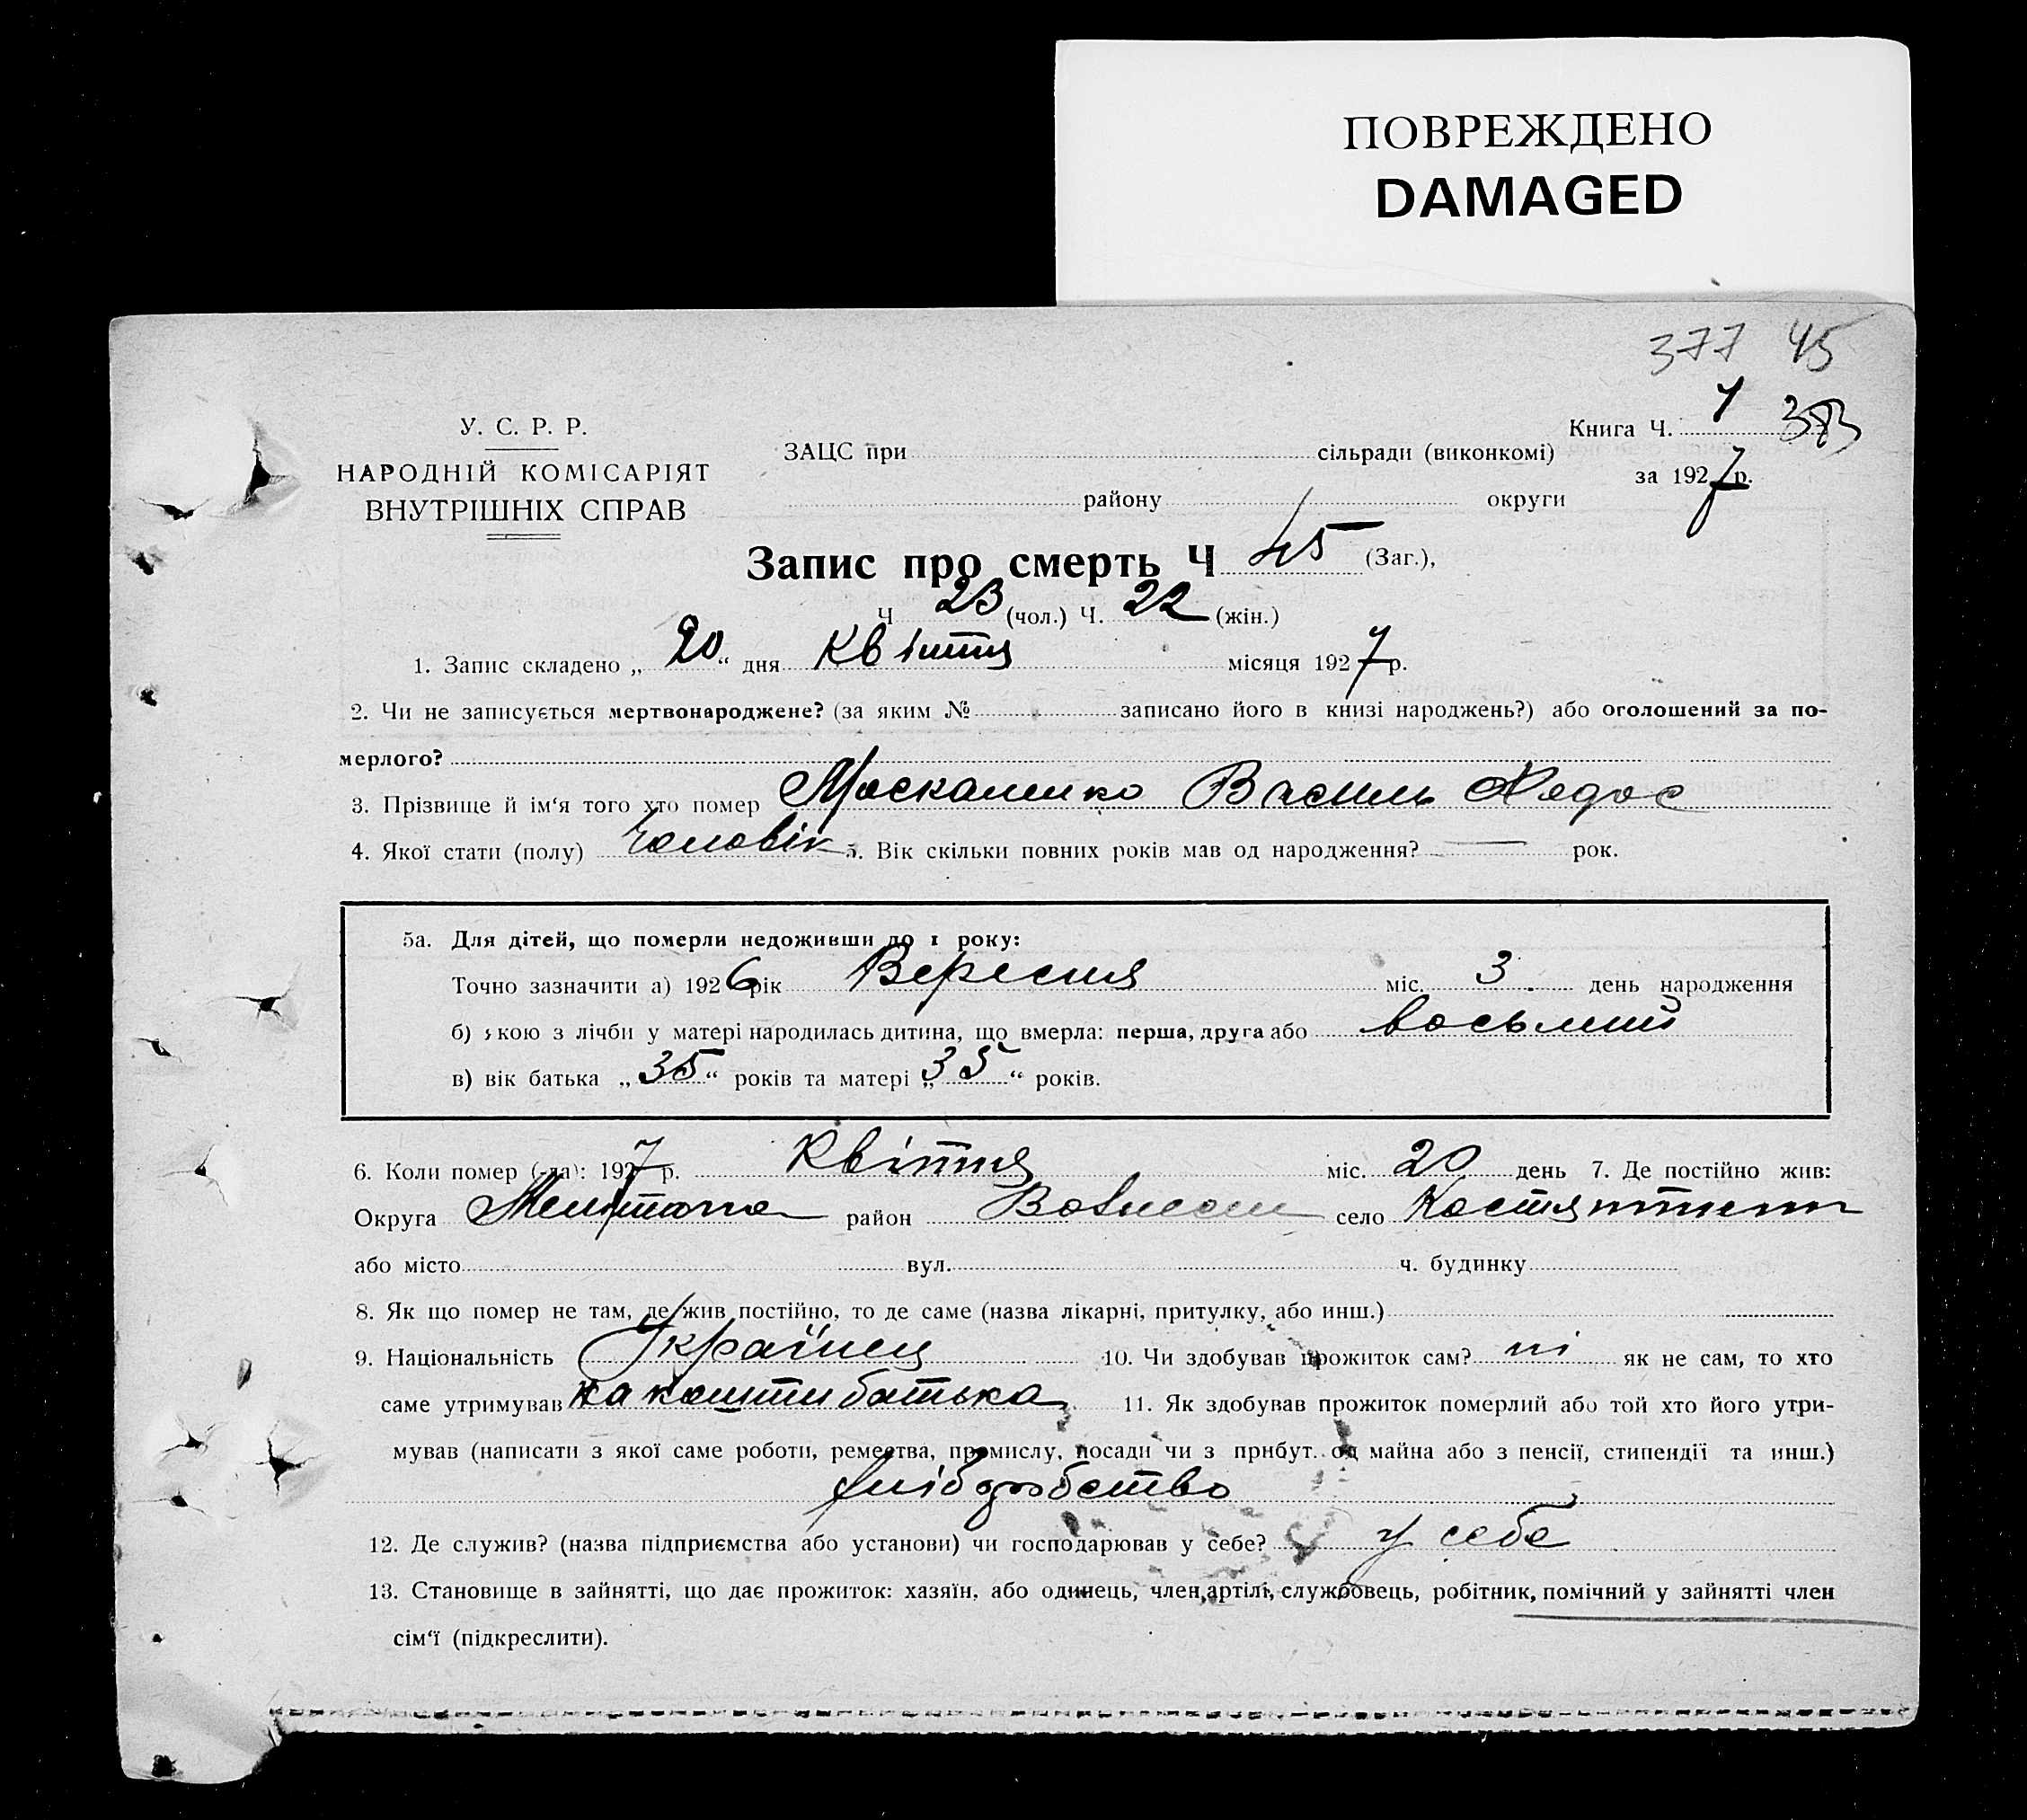 ПОВРЕЖДЕНО
DAMAGED
377 45
У. С. Р. Р.
НАРОДНІЙ КОМІСАРІЯТ
ВНУТРІШНІХ СПРАВ
ЗАЦС при сільради (виконкомі)
району округи
Книга Ч. 1 383
за 1927 р.
Запис про смерть Ч 45 (Заг.),
Ч 23 (чол.) Ч. 22 (жін.)
1. Запис складено „ 20 “ дня Квітня місяця 1927 р.
2. Чи не записується мертвонароджене? (за яким № записано його в книзі народжень?) або оголошений за по-
мерлого?
3. Прізвище й ім‘я того хто помер Москаленко Василь Федос
4. Якої стати (полу) Чоловік 5. Вік скільки повних років мав од народження? — рок.
5а. Для дітей, що померли недоживши до 1 року:
Точно зазначити а) 1926 рік Вересня міс. 3 день народження
б) якою з лічби у матері народилась дитина, що вмерла: перша, друга або восьмий
в) вік батька „ 35 “ років та матері „ 35 “ років.
6. Коли помер (-ла): 1927 р. Квітня міс. 20 день 7. Де постійно жив:
Округа Мелітопо район Вознесен село Костянтин
або місто вул. ч. будинку
8. Як що помер не там, де жив постійно, то де саме (назва лікарні, притулку, або инш.)
9. Національність Українец 10. Чи здобував прожиток сам? ні як не сам, то хто
саме утримував на кошти батька 11. Як здобував прожиток померлий або той хто його утри-
мував (написати з якої саме роботи, ремества, промислу, посади чи з прибут. од майна або з пенсії, стипендії та инш.)
хліборобство
12. Де служив? (назва підприємства або установи) чи господарював у себе? у себе
13. Становище в зайнятті, що дає прожиток: хазяїн, або одинець, член артілі, службовець, робітник, помічний у зайнятті член
сім‘ї (підкреслити).